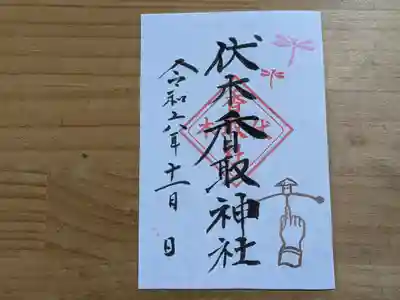 伏木香取神社
令和六年十一月 日